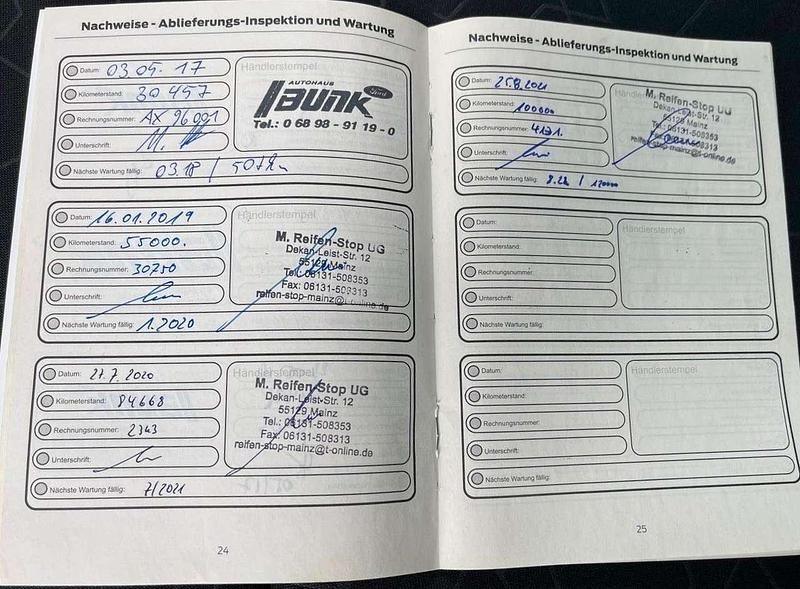 Nachweise - Ablieferungs-Inspektion und Wartung
Datum: 03.05.17
Kilometerstand: 30 457
Rechnungsnummer: AX 96001
Unterschrift:
Nächste Wartung fällig: 03.18 /
Händlerstempel
AUTOHAUS
BUNK Ford
Tel.: 0 68 98 - 91 19 - 0
Datum: 16.01.2019
Kilometerstand: 55000.
Rechnungsnummer: 30750
Unterschrift:
Nächste Wartung fällig: 1.2020
Händlerstempel
M. Reifen-Stop UG
Dekan-Leist-Str. 12
55129 Mainz
Tel.: 06131-508353
Fax: 06131-508313
reifen-stop-mainz@t-online.de
Datum: 27.7.2020
Kilometerstand: 84668
Rechnungsnummer: 2343
Unterschrift:
Nächste Wartung fällig: 7/2021
Händlerstempel
M. Reifen-Stop UG
Dekan-Leist-Str. 12
55129 Mainz
Tel.: 06131-508353
Fax: 06131-508313
reifen-stop-mainz@t-online.de
24
Nachweise - Ablieferungs-Inspektion und Wartung
Datum: 25.8.2021
Kilometerstand: 100000
Rechnungsnummer: 4131.
Unterschrift:
Nächste Wartung fällig: 8.22 /
Händlerstempel
M. Reifen-Stop UG
Dekan-Leist-Str. 12
55129 Mainz
Tel.: 06131-508353
Fax: 06131-508313
reifen-stop-mainz@t-online.de
Datum:
Kilometerstand:
Rechnungsnummer:
Unterschrift:
Nächste Wartung fällig:
Händlerstempel
Datum:
Kilometerstand:
Rechnungsnummer:
Unterschrift:
Nächste Wartung fällig:
Händlerstempel
25